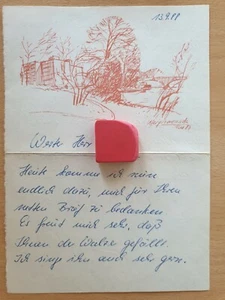 13.9.88
Werter Herr
Heute komme ich nun
endlich dazu, mich für Ihren
netten Brief zu bedanken
Es freut mich sehr, daß
Ihnen der Walzer gefällt.
Ich singe ihn auch sehr gern.